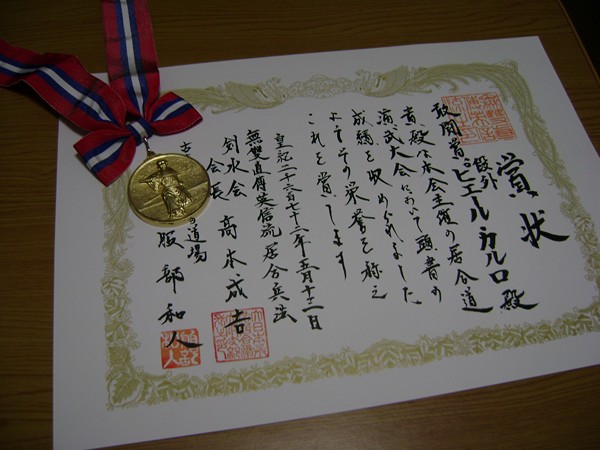 賞状
段外 ピエール カルロ 殿
敢闘賞
貴殿は本会主催の居合道
演武大会において頭書の
成績を収められました
よってその栄誉を称え
これを賞します
皇紀二千六百七十二年五月十三日
無雙直傳英信流居合兵法
剣水会
会長 高木成吉
道場
服部和人